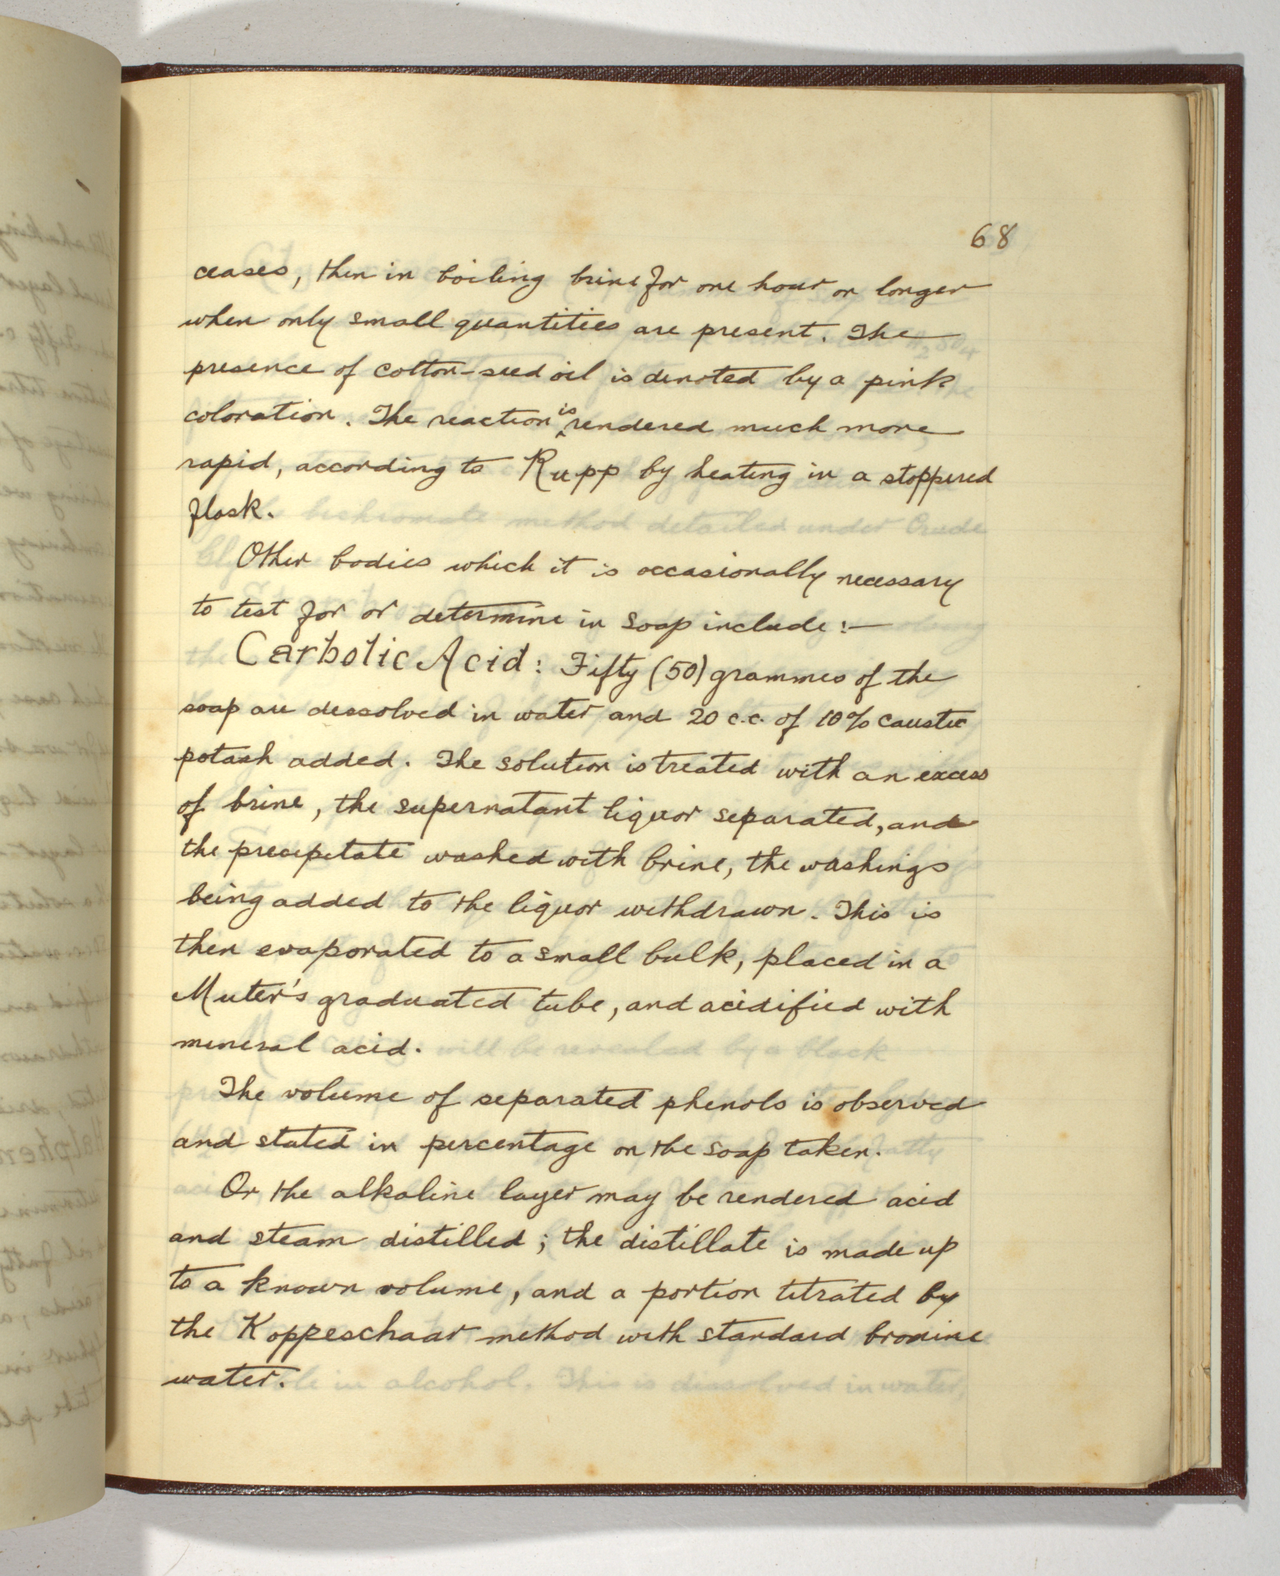 68
ceases, then in boiling brine for one hour or longer
when only small quantities are present. The
presence of cotton-seed oil is denoted by a pink
coloration. The reaction is rendered much more
rapid, according to Rupp by heating in a stoppered
flask.
Other bodies which it is occasionally necessary
to test for or determine in Soap include :—
Carbolic Acid: Fifty (50) grammes of the
soap are dessolved in water and 20 c.c. of 10% caustic
potash added. The solution is treated with an excess
of brine, the supernatant liquor separated, and
the precipetate washed with brine, the washings
being added to the liquor withdrawn. This is
then evaporated to a small bulk, placed in a
Muter's graduated tube, and acidified with
mineral acid.
The volume of separated phenols is observed
and stated in percentage on the soap taken.
Or the alkaline layer may be rendered acid
and steam distilled; the distillate is made up
to a known volume, and a portion titrated by
the Koppeschaar method with standard bromine
water.